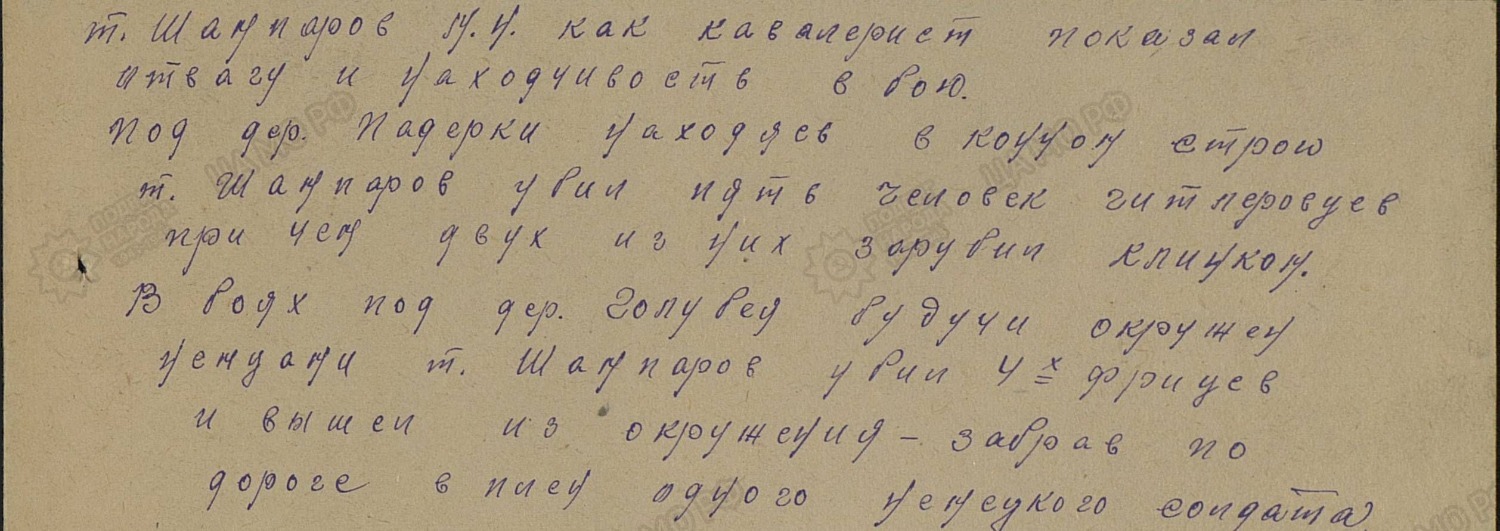 т. Шаупаров И.И. как кавалерист показал
отвагу и находчивость в бою.
Под дер. Падерки находясь в конном строю
т. Шаупаров убил пять человек гитлеровцев
при чем двух из них зарубил клинком.
В боях под дер. Голубея будучи окружен
немцами т. Шаупаров убил 4х фрицев
и вышел из окружения – забрав по
дороге в плен одного немецкого солдата